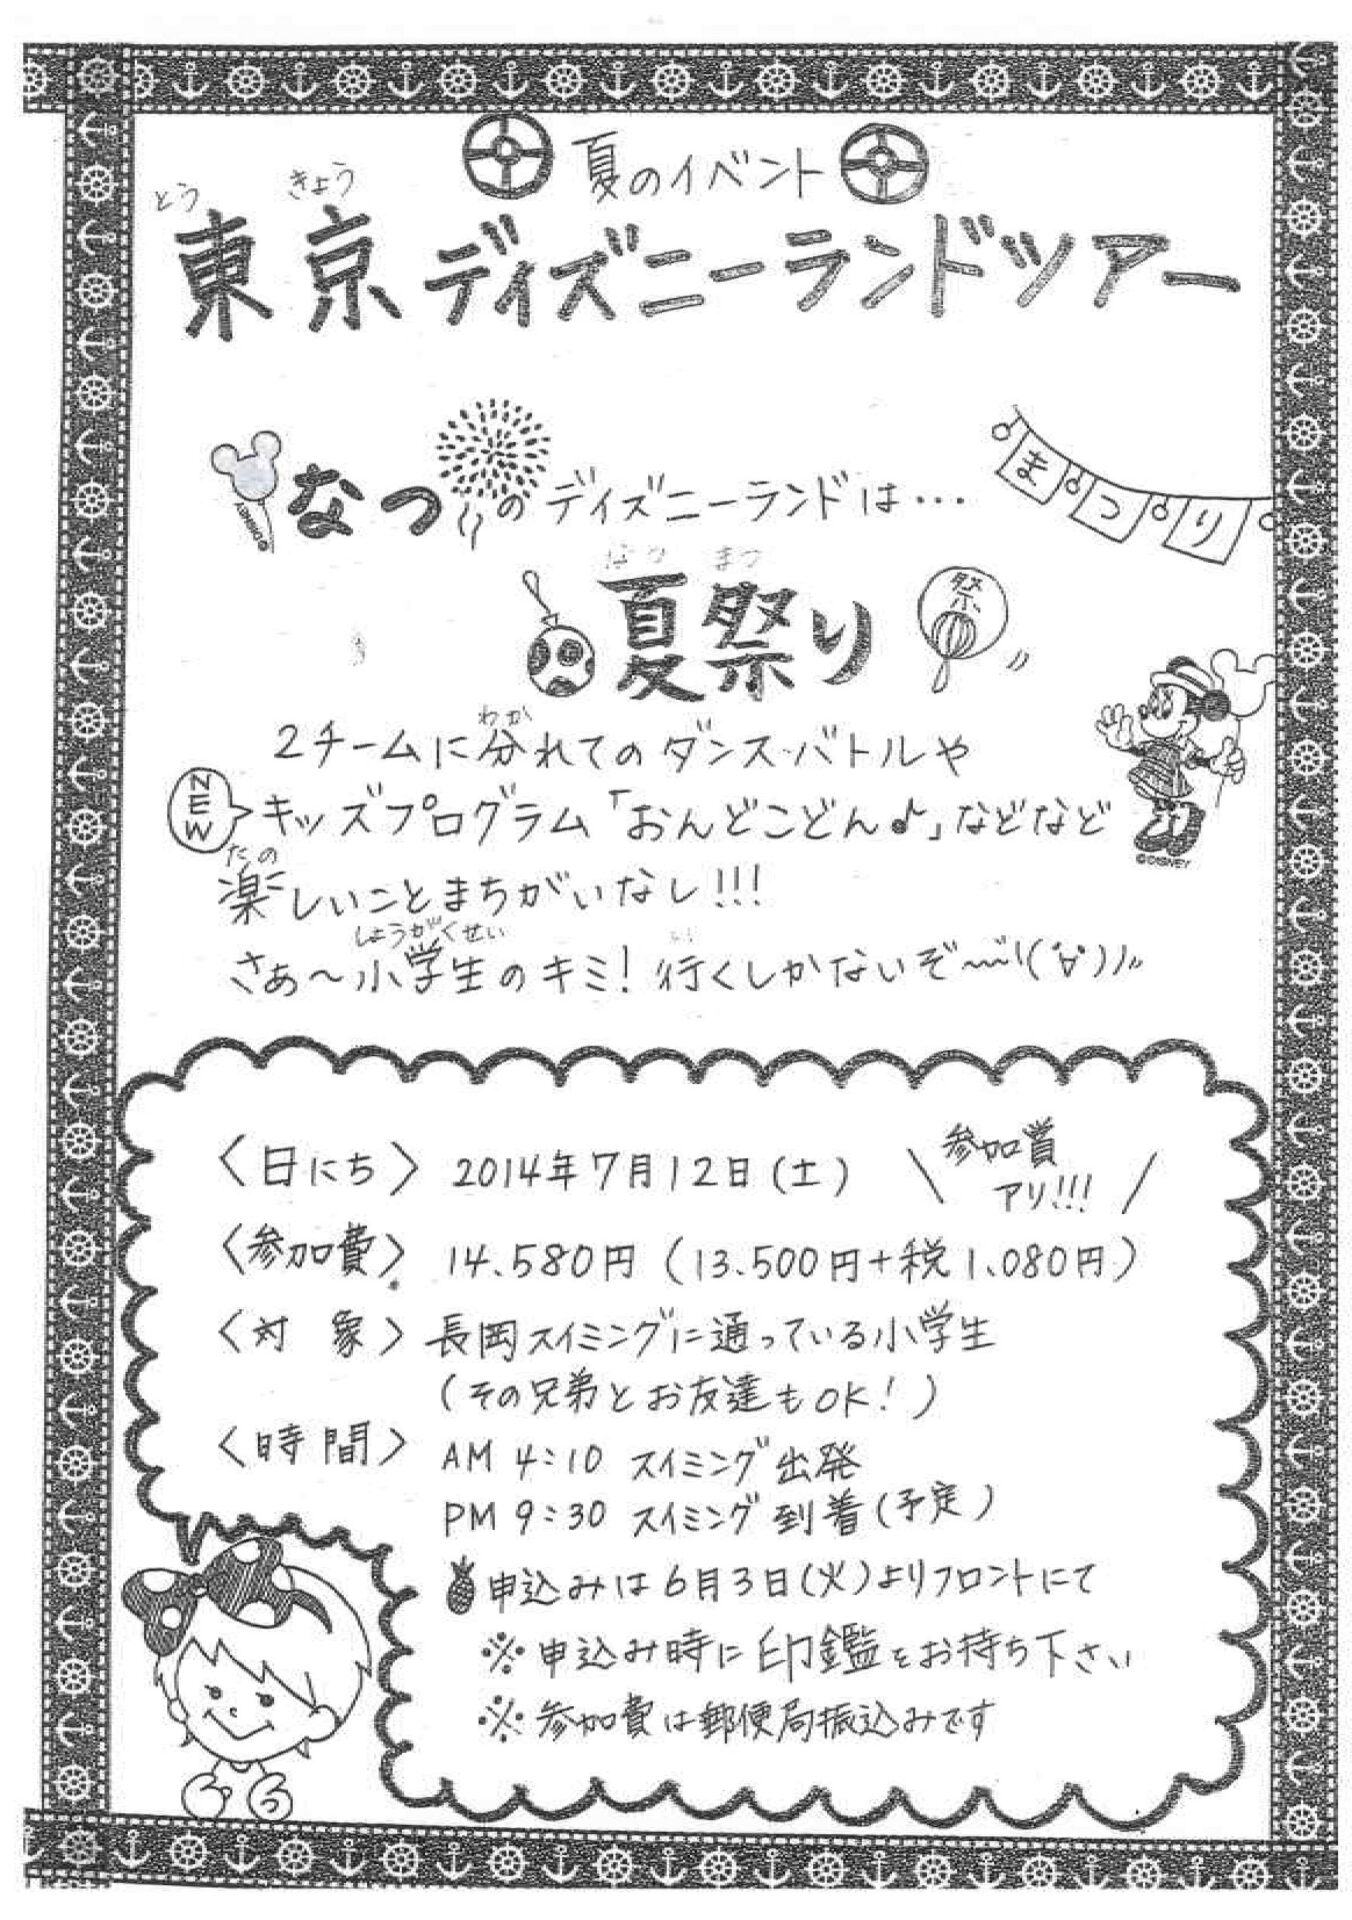 夏のイベント
とう きょう
東京ディズニーランドツアー
なつのディズニーランドは…
まつり
なつ まつ
夏祭り
祭
わか
2チームに分れてのダンス・バトルや
NEW
キッズプログラム「おんどこどん♪」などなど
©DISNEY
たの
楽しいことまちがいなし!!!
しょうがくせい い
さぁ〜小学生のキミ!行くしかないぞ〜\(˙∀˙)//
<日にち> 2014年7月12日(土)
\ 参加賞 アリ!!! /
<参加費> 14.580円(13.500円+税1.080円)
<対 象> 長岡スイミングに通っている小学生
(その兄弟とお友達もOK!)
<時間> AM 4:10 スイミング出発
PM 9:30 スイミング到着(予定)
申込みは6月3日(火)よりフロントにて
※申込み時に印鑑をお持ち下さい
※参加費は郵便局振込みです